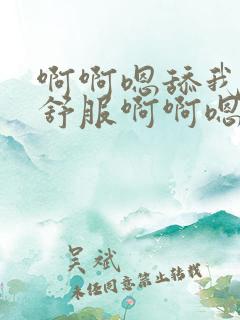 啊啊嗯舔我
舒服啊啊嗯
吴斌
未经同意禁止转载